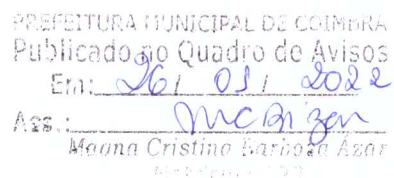 PREFEITURA MUNICIPAL DE COIMBRA
Publicado no Quadro de Avisos
Em: 26 / 01 / 2022
Ass.:
Moana Cristina Barbosa Azar